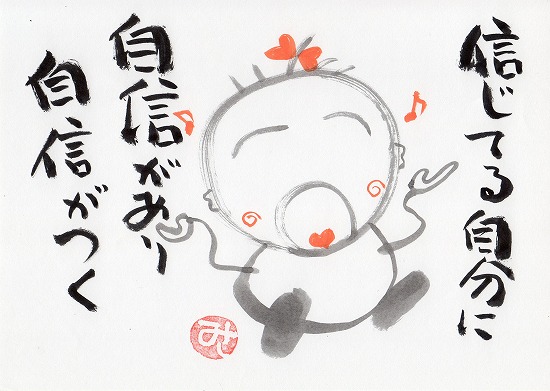 信じてる自分に
自信があり
自信がつく
み